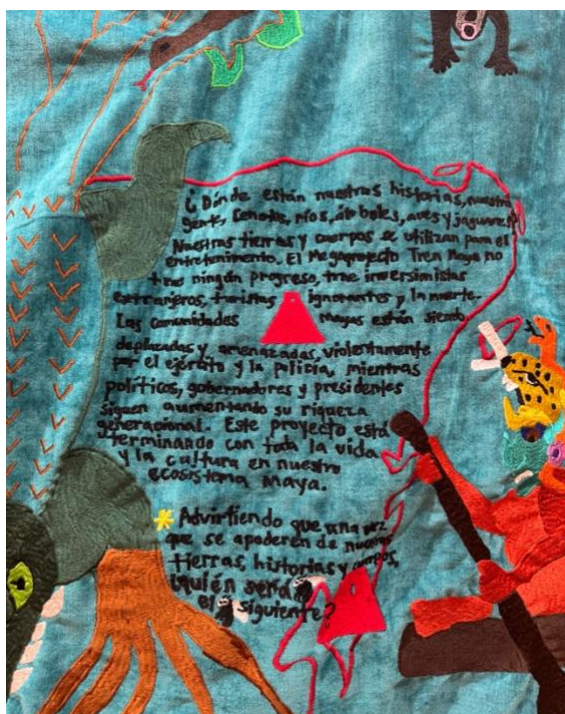 ¿Dónde están nuestras historias, nuestra
gente, Cenotes, ríos, árboles, aves y jaguares?
Nuestras tierras y cuerpos se utilizan para el
entretenimiento. El Megaproyecto Tren Maya no
trae ningún progreso, trae inversimistas
extranjeros, turistas ignorantes y la muerte.
Las comunidades mayas están siendo
desplazadas y amenazadas, violentamente
por el ejército y la policía, mientras
políticos, gobernadores y presidentes
siguen aumentando su riqueza
generacional. Este proyecto está
terminando con toda la vida
y la cultura en nuestro
ecosistema Maya.
*Advirtiendo que una vez
que se apoderen de nuestras
tierras, historias y cuerpos,
¿quién será
el siguiente?